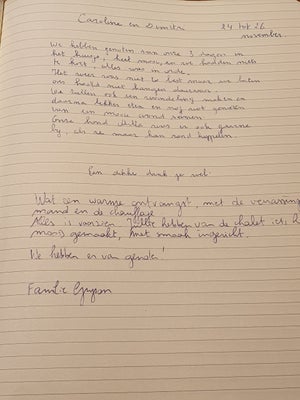 Caroline en Dimitri 24 tot 26
november.
We hebben genoten van onze 3 dagen in
het huisje, heel mooi, en we hadden niets
te kort, alles was in orde.
Het weer was niet te best maar we laten
ons hoofd niet hangen daarvoor.
We zullen ook een wandeling maken en
daarna lekker eten en nog niet genieten
van een mooie avond samen.
Onze hond was er ook gaarne
bij, als ze maar kan rond huppelen.
Een dikke dank je wel.
Wat een warme ontvangst, met de verrassing
mand en de chauffage
Alles is voorzien. Jullie hebben van de chalet iets
moois gemaakt, met smaak ingericht.
We hebben er van genoten!
Familie